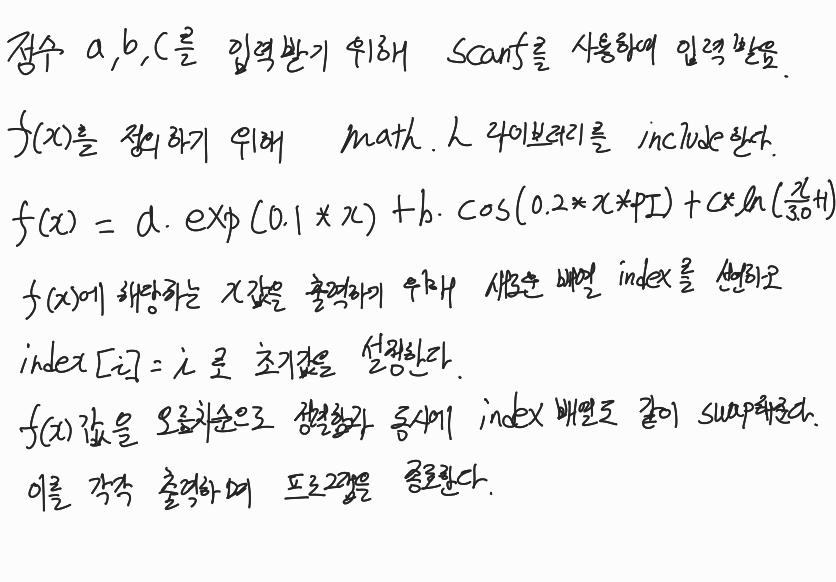 점수 a,b,c를 입력받기 위해 scanf를 사용하여 입력받음.
f(x)를 정의하기 위해 math.h 라이브러리를 include 한다.
f(x) = a. exp(0.1*x) + b. cos(0.2*x*PI) + c*ln(x/3.0+1)
f(x)에 해당하는 x값을 출력하기 위해 새로운 배열 index를 선언하고
index[i]=i 로 초기값을 설정한다.
f(x)값을 오름차순으로 정렬함과 동시에 index 배열도 같이 swap해준다.
이를 각각 출력하며 프로그램을 종료한다.